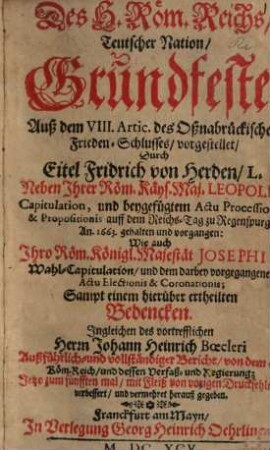 Des H. Röm. Reichs/
Teutscher Nation/
Grundfeste
Auß dem VIII. Artic. des Oßnabrückische
Frieden-Schlusses/ vorgestellet/
Durch
Eitel Fridrich von Herden/ L.
Neben Ihrer Röm. Käys. Maj. LEOPOL
Capitulation, und beygefügtem Actu Processio
& Propositionis auff dem Reichs-Tag zu Regenspurg
An. 1663. gehalten und vorgangen:
Wie auch
Ihro Röm. Königl. Majestät JOSEPHI
Wahl-Capitulation/ und dem darbey vorgegangene
Actu Electionis & Coronationis;
Sampt einem hierüber ertheilten
Bedencken.
Ingleichen des vortrefflichen
Herrn Johann Heinrich Bœcleri
Außführlich und vollständiger Bericht/ von dem
Röm. Reich/ und dessen Verfaß- und Regierung;
Jetzo zum fünfften mal/ mit Fleiß von vorigen Druckfehl
verbessert/ und vermehret herauß gegeben.
Franckfurt am Mayn/
In Verlegung Georg Heinrich Oehrling
M DC XCV